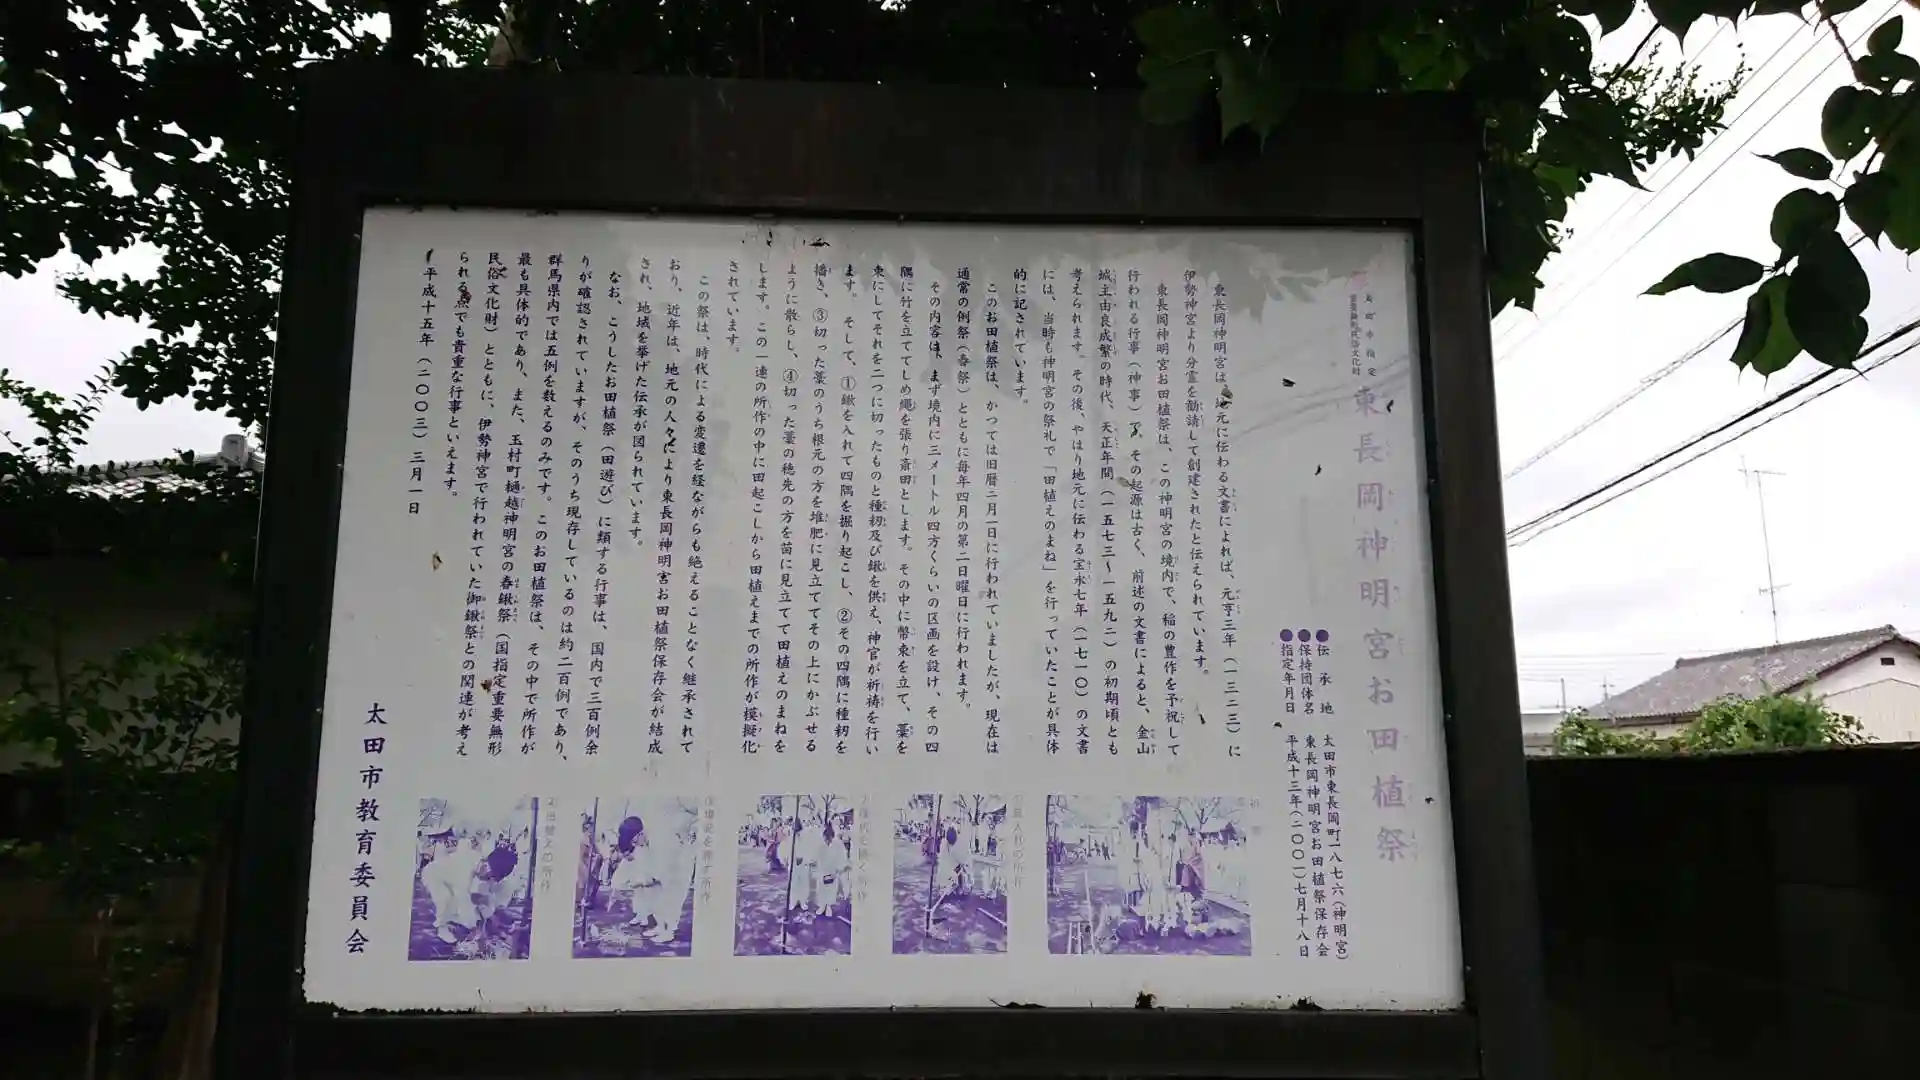 太田市指定
重要無形民俗文化財
東長岡神明宮お田植祭
●伝承地 太田市東長岡町一八七六(神明宮)
●保持団体名 東長岡神明宮お田植祭保存会
●指定年月日 平成十三年(二〇〇一)七月十八日
東長岡神明宮は地元に伝わる文書によれば、元亨三年(一三二三)に
伊勢神宮より分霊を勧請して創建されたと伝えられています。
東長岡神明宮お田植祭は、この神明宮の境内で、稲の豊作を予祝して
行われる行事(神事)で、その起源は古く、前述の文書によると、金山
城主由良成繁の時代、天正年間(一五七三〜一五九二)の初期頃とも
考えられます。その後、やはり地元に伝わる宝永七年(一七一〇)の文書
には、当時も神明宮の祭礼で「田植えのまね」を行っていたことが具体
的に記されています。
このお田植祭は、かつては旧暦二月一日に行われていましたが、現在は
通常の例祭(春祭)とともに毎年四月の第二日曜日に行われます。
その内容は、まず境内に三メートル四方くらいの区画を設け、その四
隅に竹を立ててしめ縄を張り斎田とします。その中に幣束を立て、藁を
束にしてそれを二つに切ったものと種籾及び鍬を供え、神官が祈祷を行い
ます。そして、①鍬を入れて四隅を掘り起こし、②その四隅に種籾を
播き、③切った藁のうち根元の方を堆肥に見立ててその上にかぶせる
ように散らし、④切った藁の穂先の方を苗に見立てて田植えのまねを
します。この一連の所作の中に田起こしから田植えまでの所作が模擬化
されています。
この祭は、時代による変遷を経ながらも絶えることなく継承されて
おり、近年は、地元の人々により東長岡神明宮お田植祭保存会が結成
され、地域を挙げた伝承が図られています。
なお、こうしたお田植祭(田遊び)に類する行事は、国内で三百例余
りが確認されていますが、そのうち現存しているのは約二百例であり、
群馬県内では五例を数えるのみです。このお田植祭は、その中で所作が
最も具体的であり、また、玉村町樋越神明宮の春鍬祭(国指定重要無形
民俗文化財)とともに、伊勢神宮で行われていた御鍬祭との関連が考え
られる点でも貴重な行事といえます。
平成十五年(二〇〇三)三月一日
祈祷
①鍬入れの所作
②種籾を播く所作
③堆肥を散らす所作
④田植えの所作
太田市教育委員会